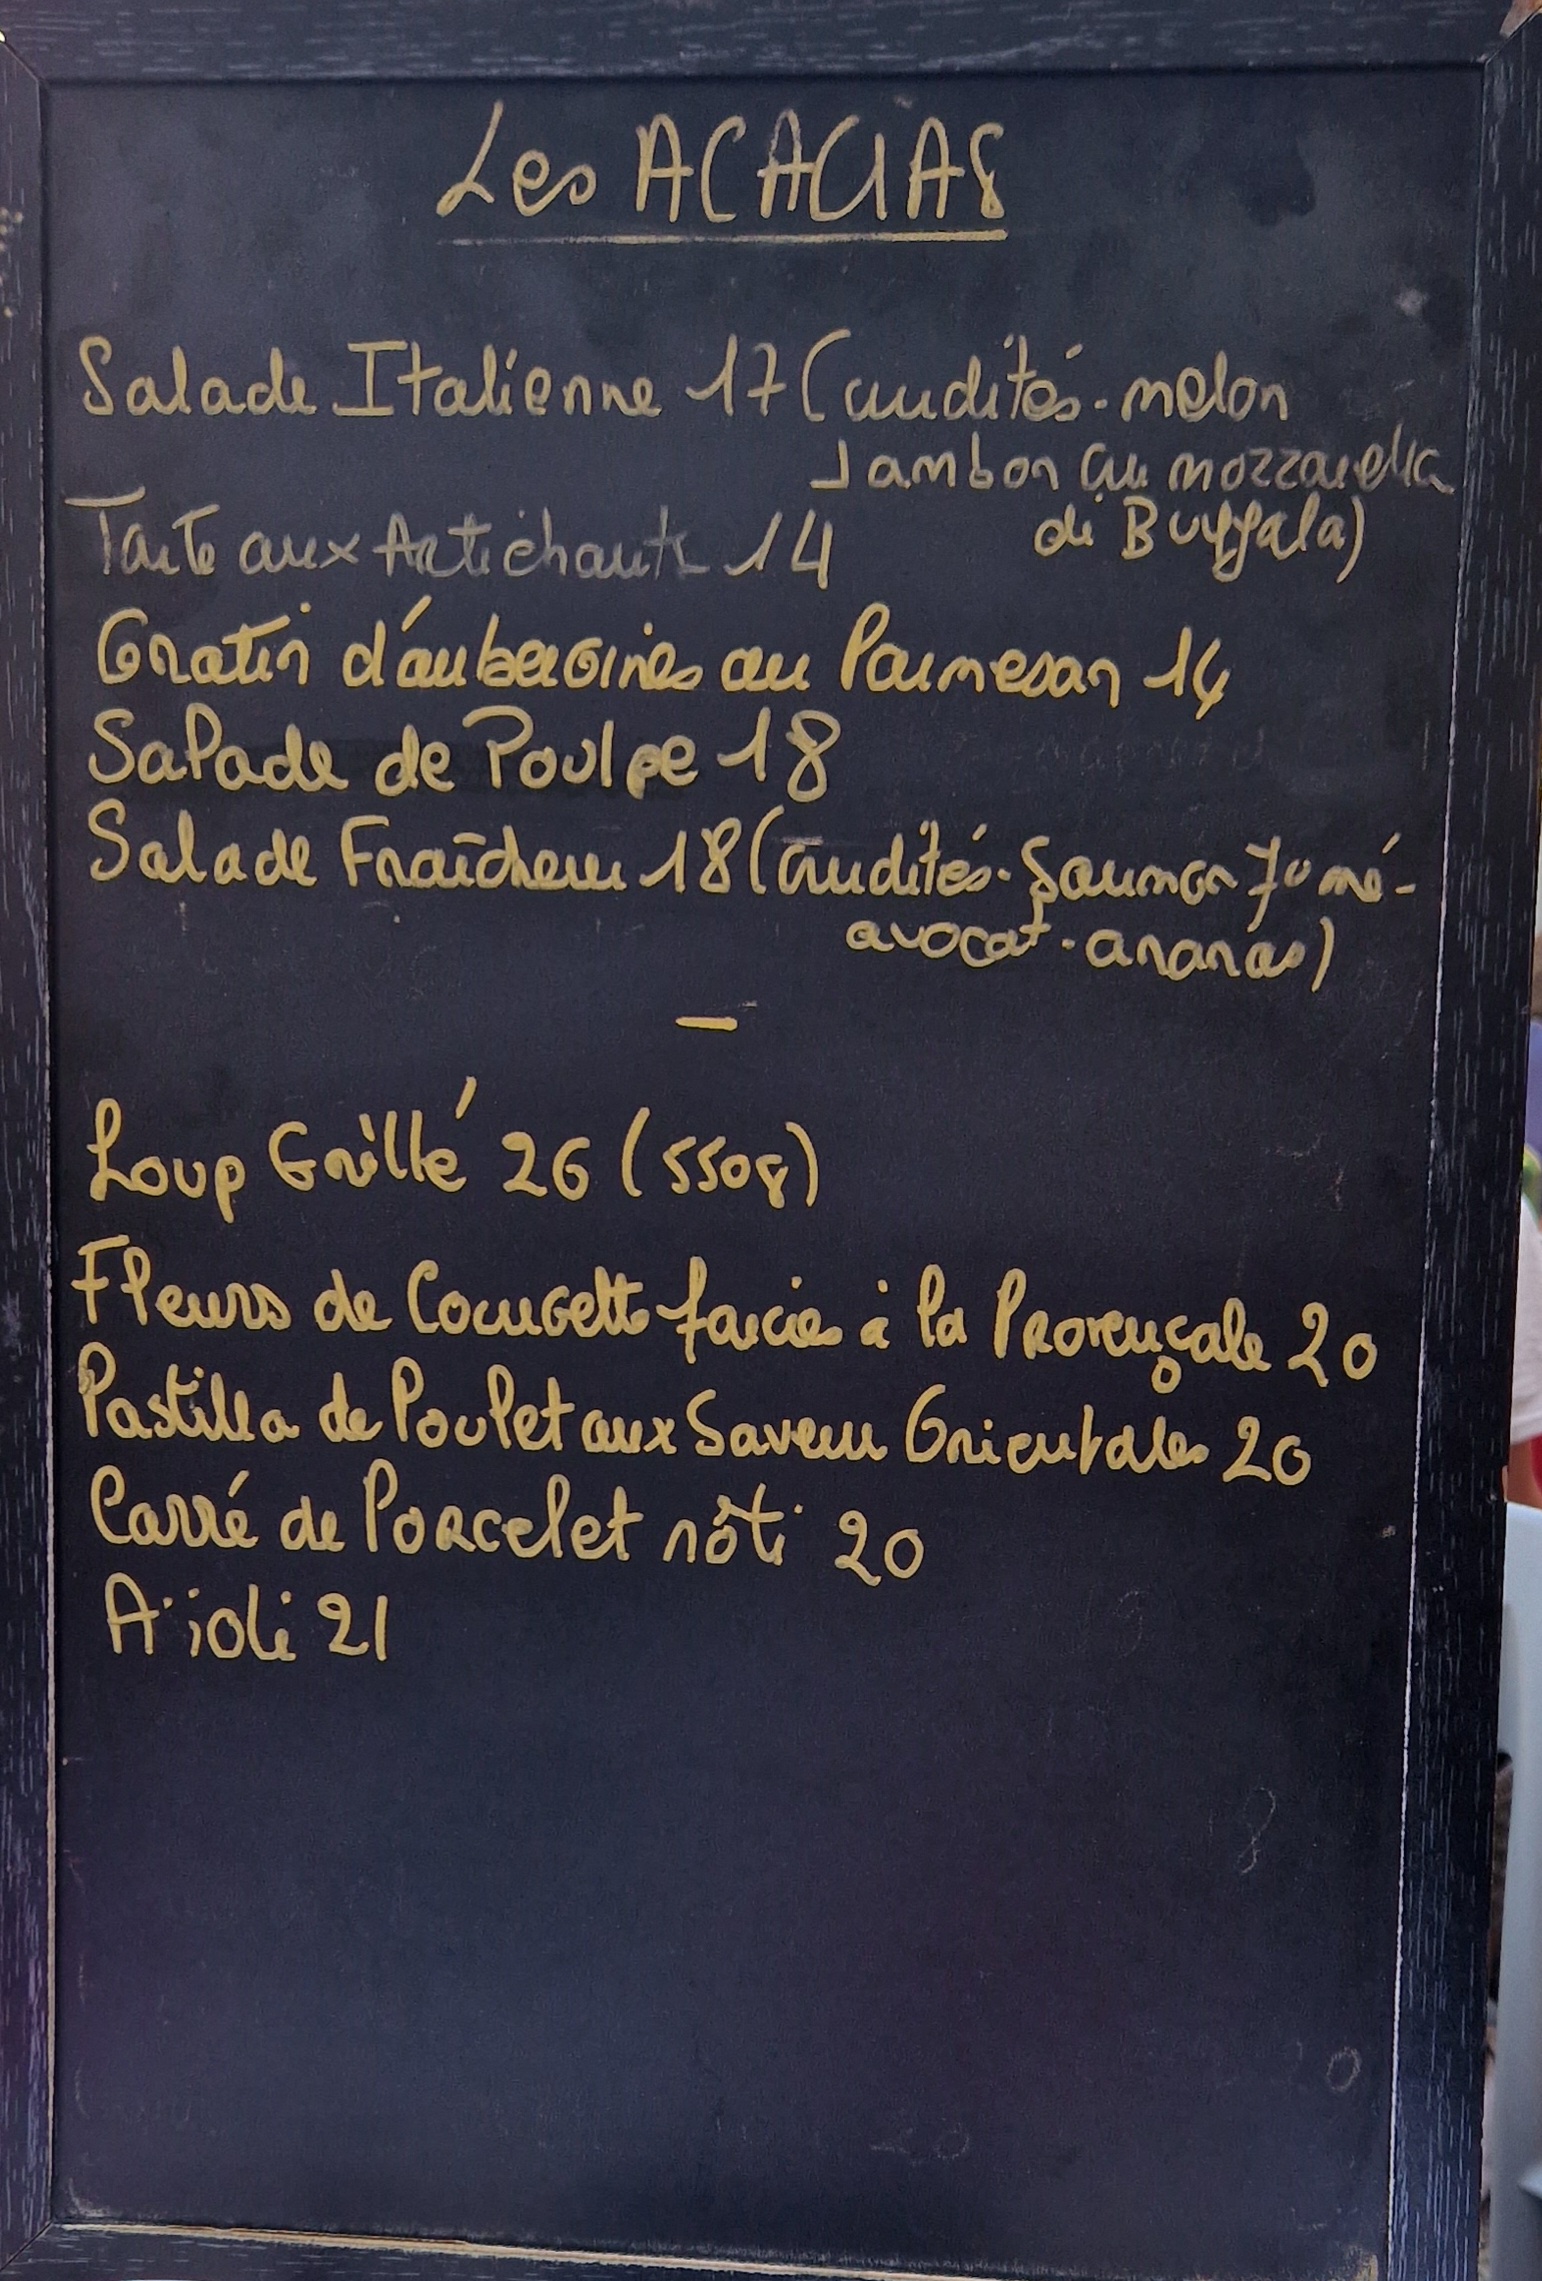 Les ACACIAS
Salade Italienne 17 (crudités - melon
Jambon cru mozzarella
di Buffala)
Tarte aux Artichauts 14
Gratin d'aubergines au Parmesan 14
Salade de Poulpe 18
Salade Fraîcheur 18 (crudités - Saumon fumé -
avocat - ananas)
—
Loup Grillé 26 (550g)
Fleurs de Courgette farcies à la Provençale 20
Pastilla de Poulet aux Saveurs Orientales 20
Carré de Porcelet rôti 20
Aïoli 21